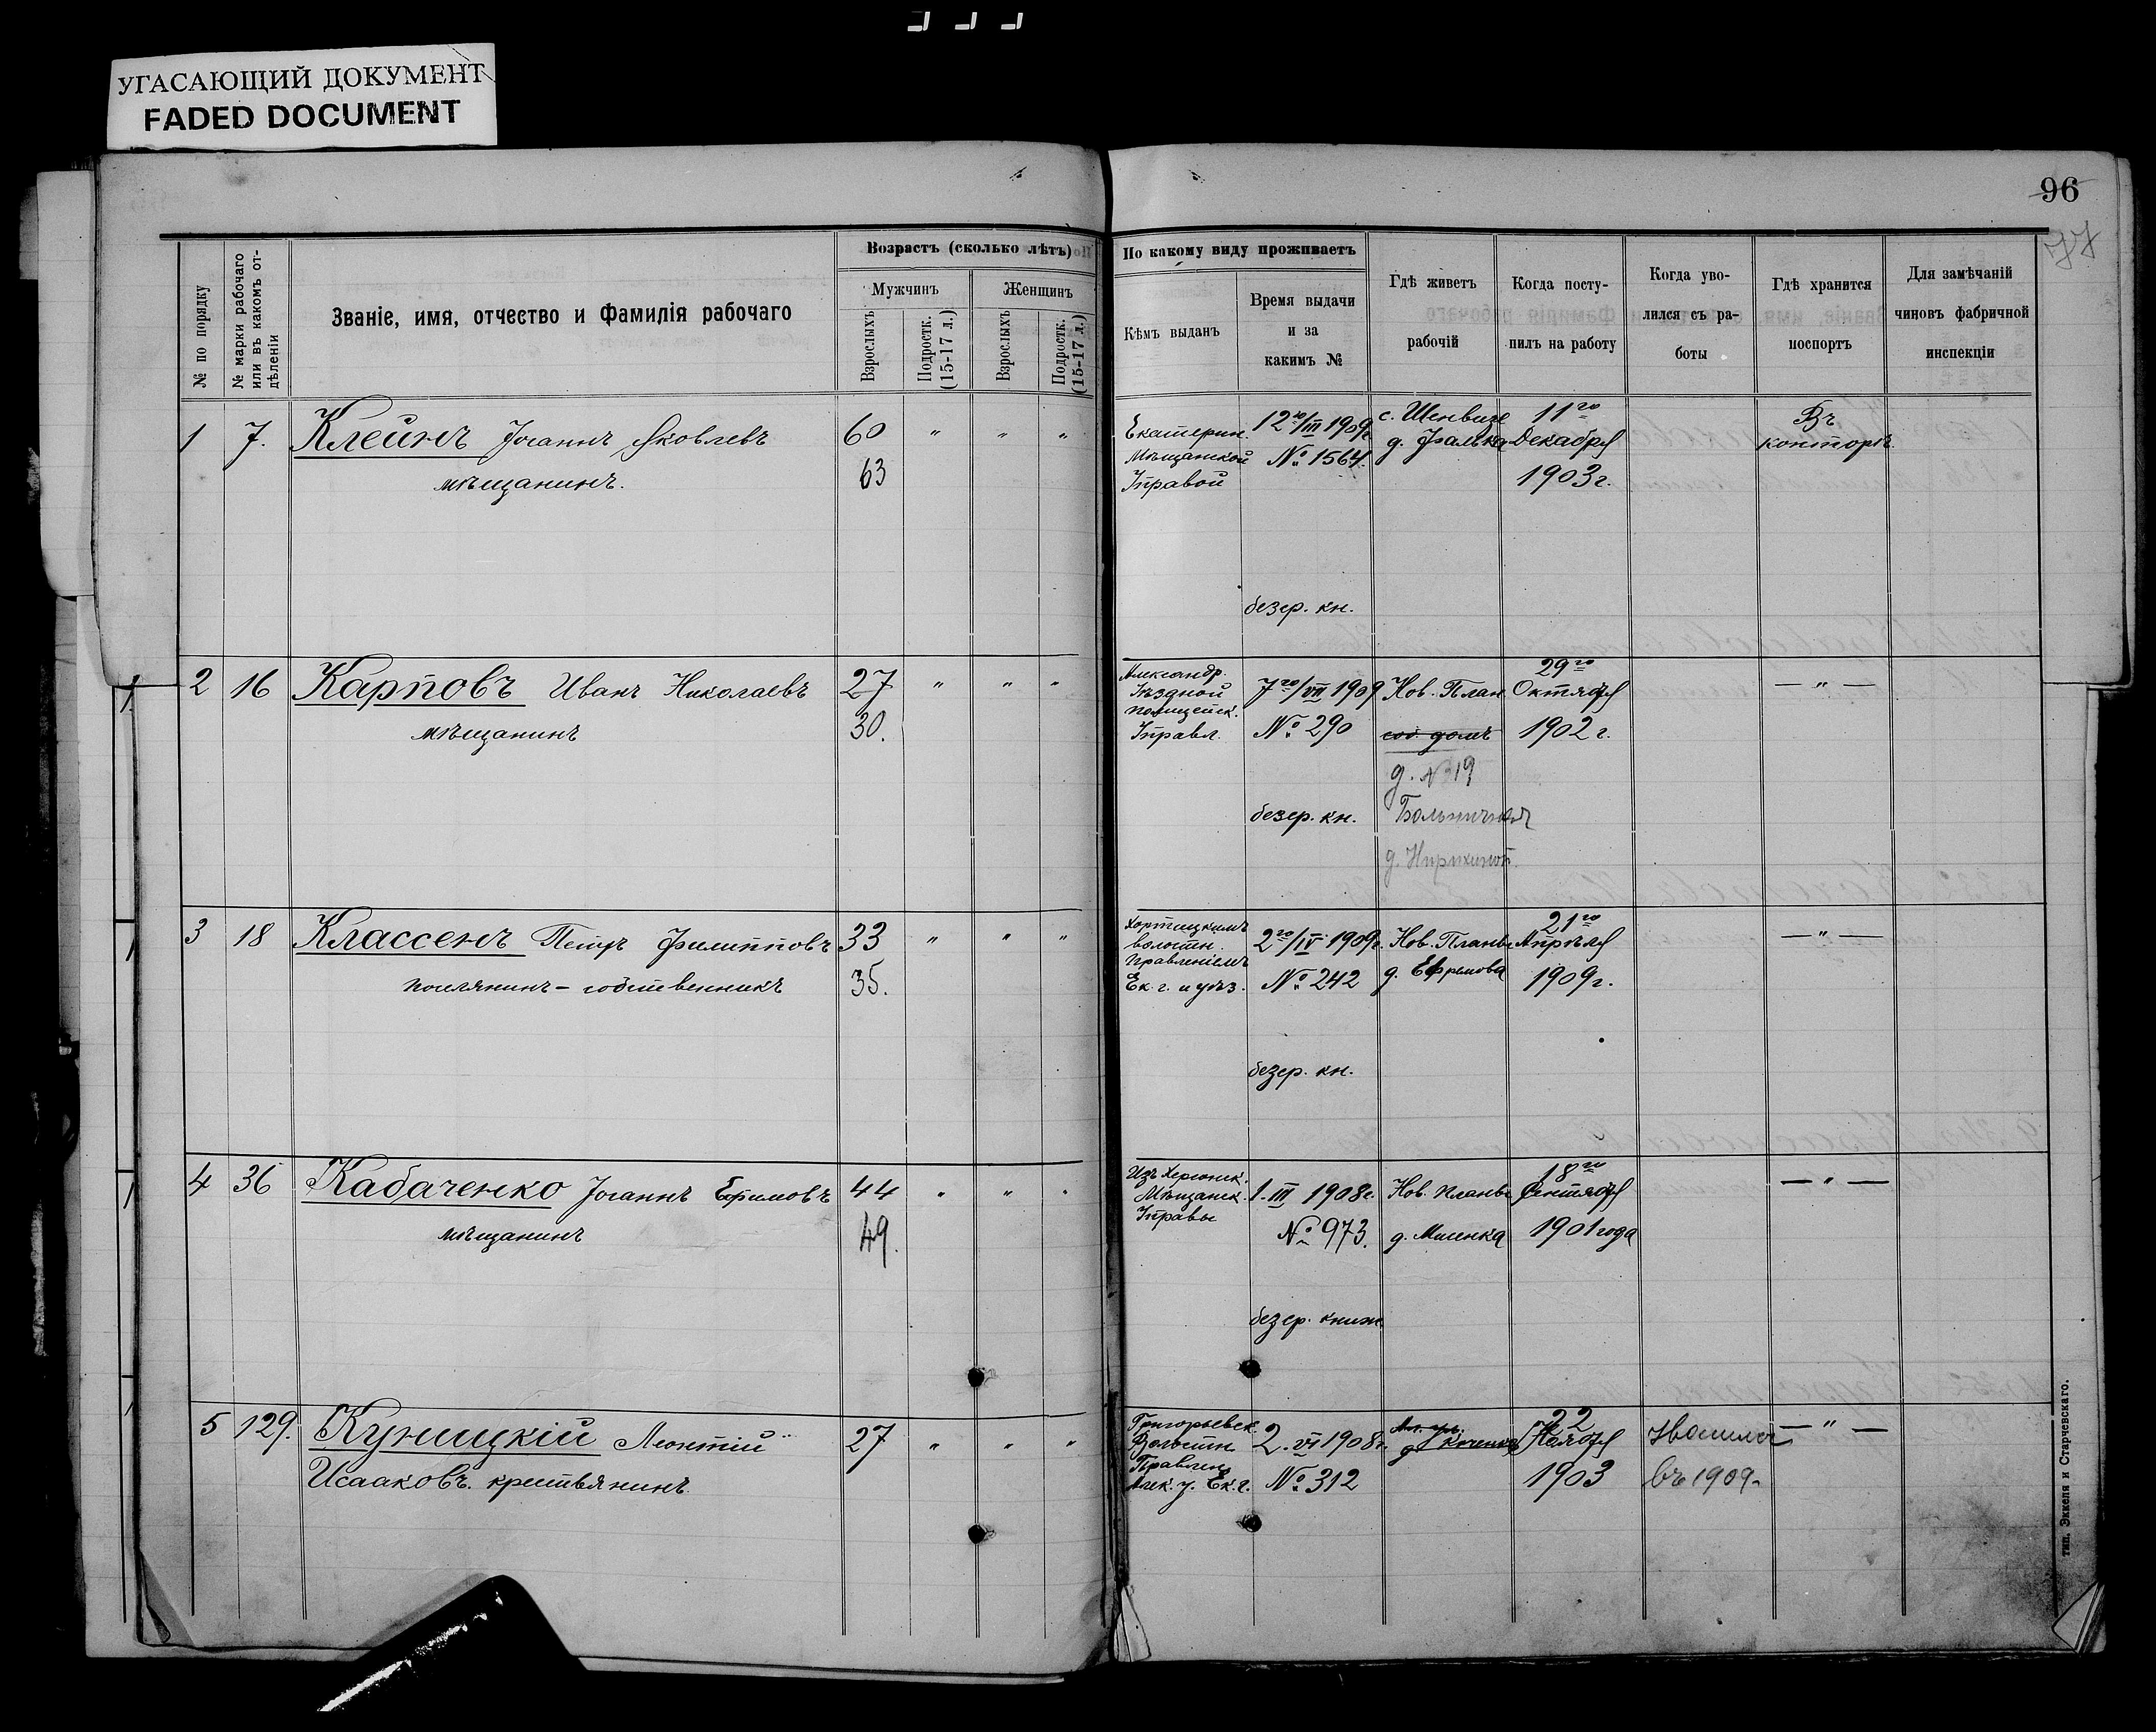 УГАСАЮЩИЙ ДОКУМЕНТ
FADED DOCUMENT
96
№ по порядку
№ марки рабочаго или въ какомъ отдѣленіи
Званіе, имя, отчество и фамилія рабочаго
Возрастъ (сколько лѣтъ)
Мужчинъ
Женщинъ
Взрослыхъ
Подростк. (15-17 л.)
Взрослыхъ
Подростк. (15-17 л.)
По какому виду проживаетъ
Кѣмъ выданъ
Время выдачи
и за
какимъ №
Гдѣ живетъ
рабочій
Когда посту-
пилъ на работу
Когда уво-
лился съ ра-
боты
Гдѣ хранится
поспортъ
Для замѣчаній
чиновъ фабричной
инспекціи
1 7. Клейнъ Іоганнъ Яковлевъ 60 " " "
мѣщанинъ. 63
Екатерин.
Мѣщанской
Управой
12го/III 1909г.
№ 1564.
безср. кн.
с. Шенвизе
д. Фалька
11го
Декабря
1903г.
Въ
конторѣ
2 16 Карповъ Иванъ Николаевъ 27 " " "
мѣщанинъ 30.
Александр.
Уѣздной
полицейск.
Управл.
7го/VII 1909
№ 290
безср. кн.
Нов. План
соб. домъ
д. №19
Больничная
29го
Октября
1902 г.
— " —
3 18 Классенъ Петръ Филипповъ 33 " " "
поселянинъ - собственникъ 35.
Хортицкимъ
волостн.
Правленіемъ
Ек. г. и уѣз.
2го/IV 1909г.
№ 242
безср. кн.
Нов. Планы
д. Ефремова
21го
Апрѣля
1909г.
— " —
4 36 Кабаченко Іоганнъ Ефимовъ 44 " " "
мѣщанинъ 49.
Изъ Херсонск.
Мѣщанск.
Управы
1. III 1908г.
№ 973.
безср. книж.
Нов. планы
д. Мисенка
18го
Сентября
1901 года
— " —
5 129. Куницкій Леонтій 27 " " "
Исааковъ. крестьянинъ
Григорьевск.
Волостн.
Правлен.
Алек. у. Ек. г.
2. VI 1908г.
№ 312
22
Ноября
1903
въ 1909
— " —
тип. Эккеля и Старчевскаго.